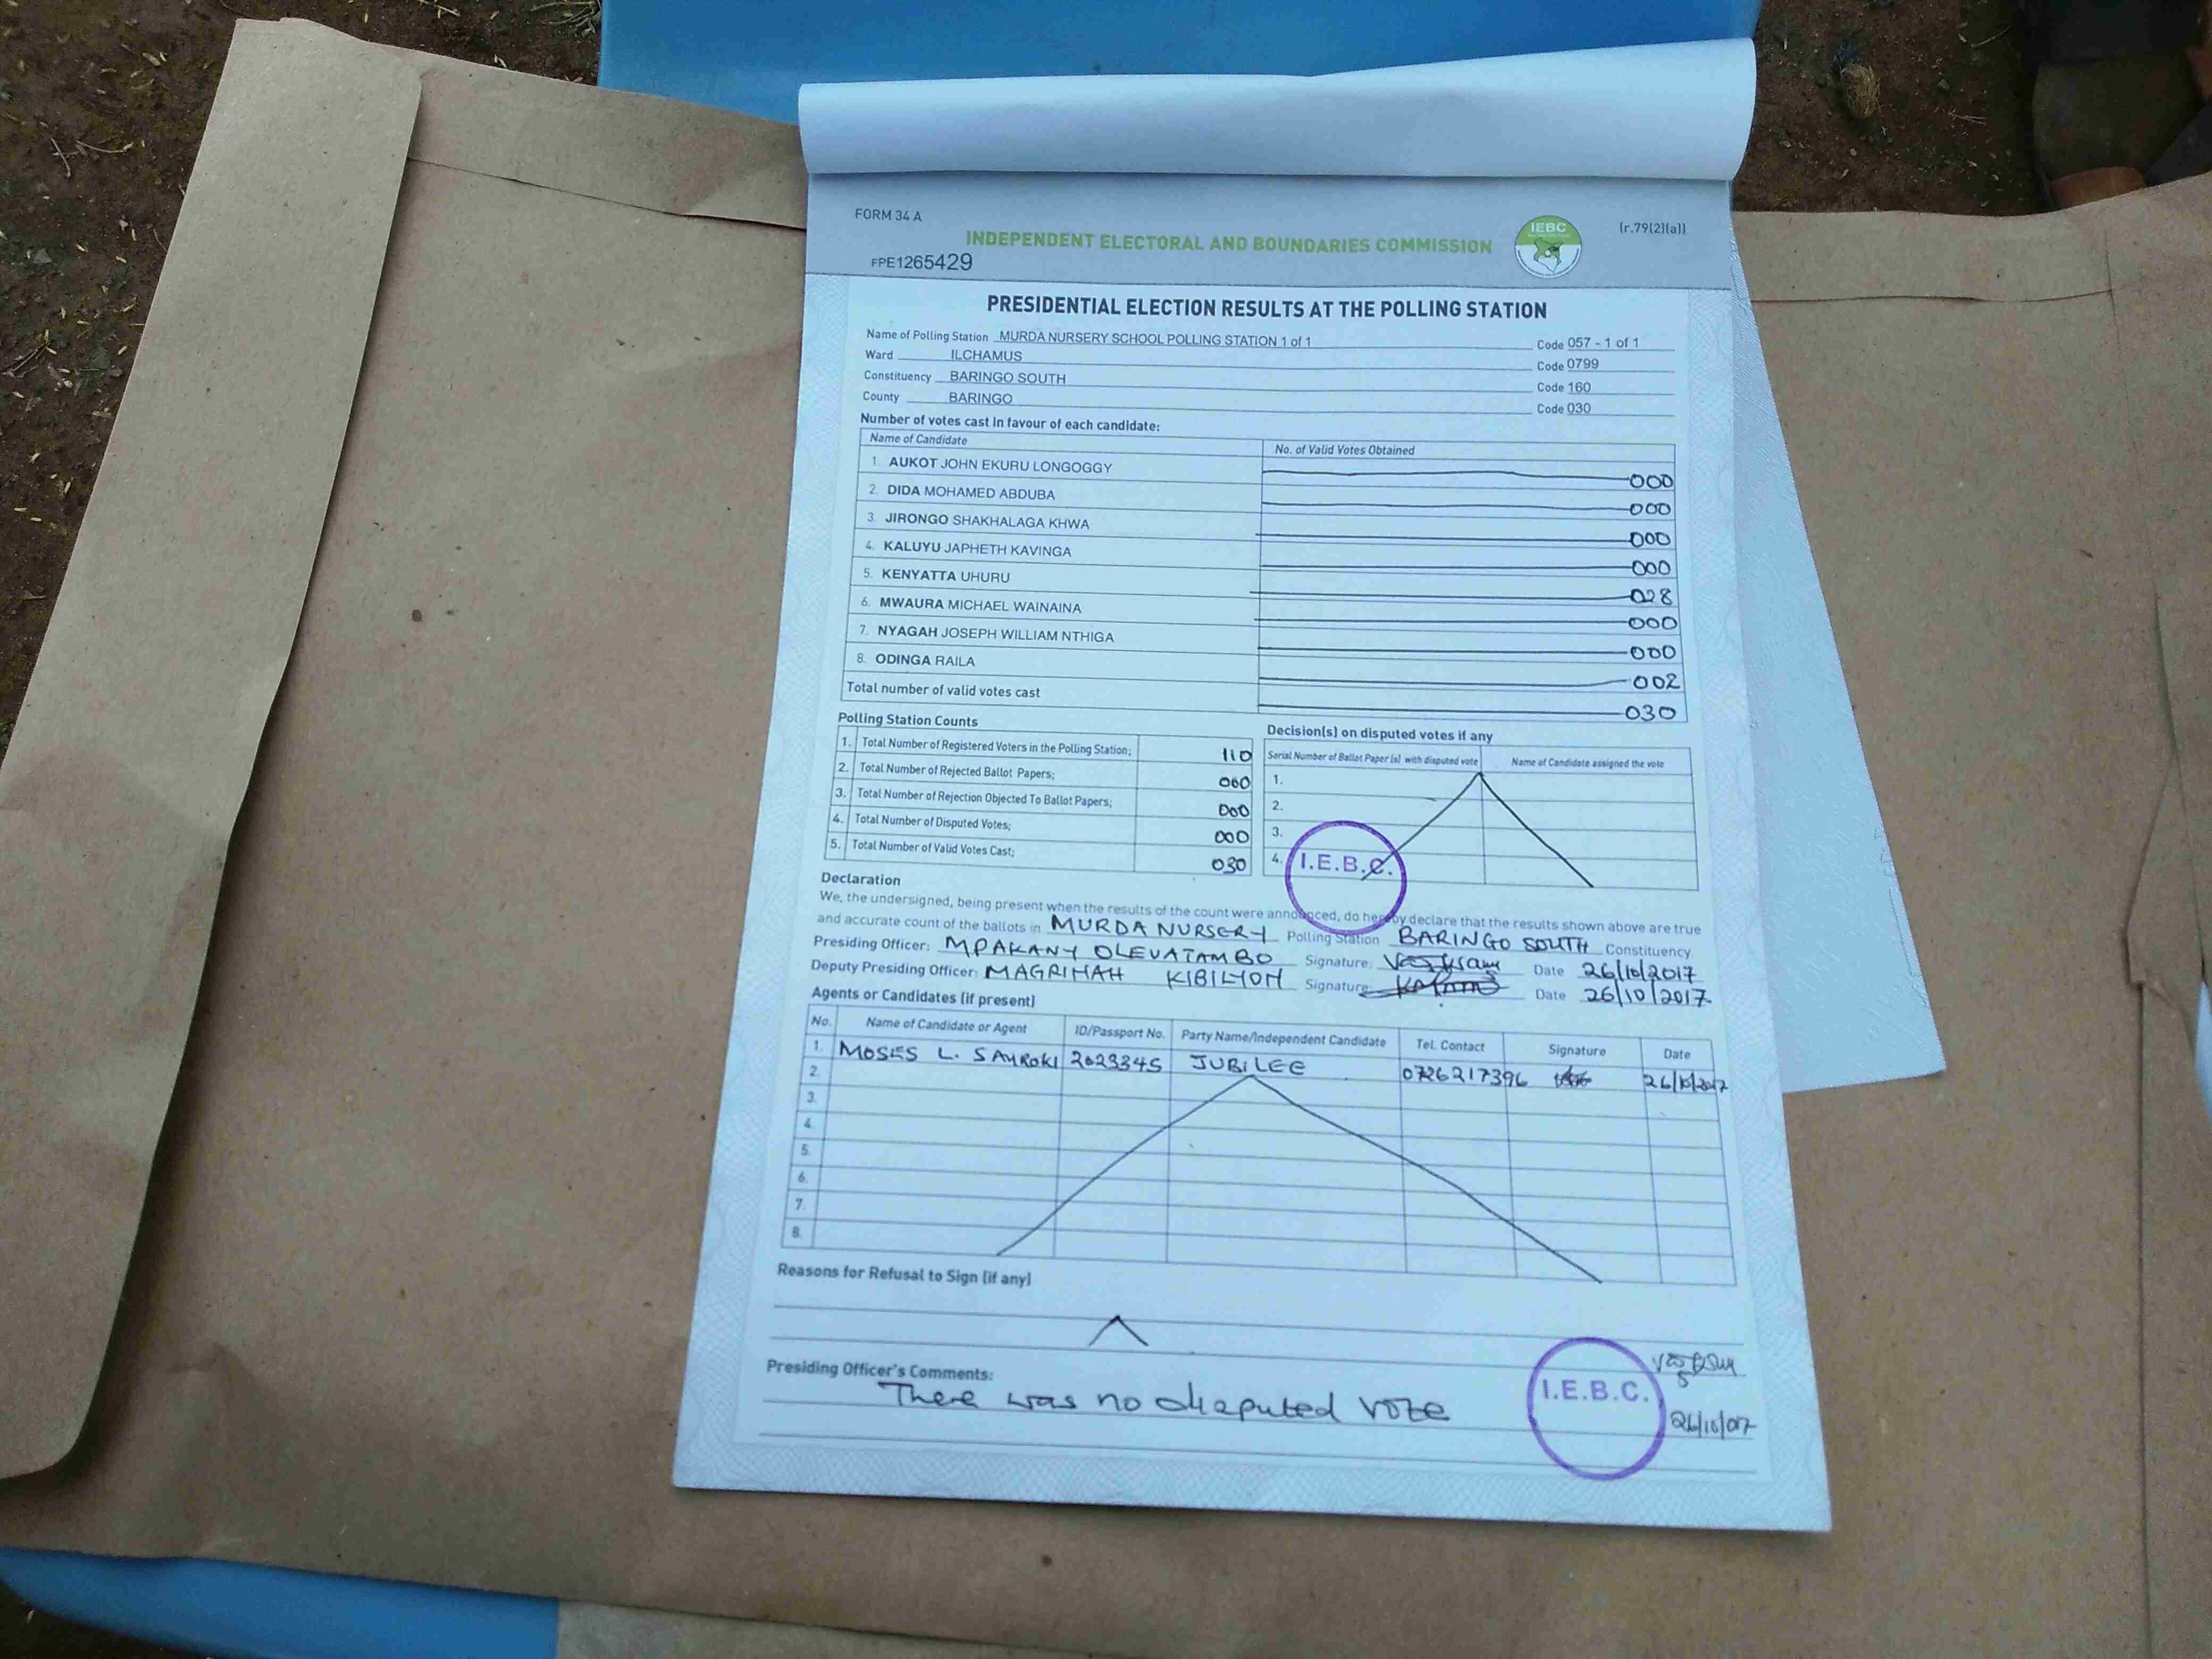 FORM 34 A
INDEPENDENT ELECTORAL AND BOUNDARIES COMMISSION
IEBC
(r.79(2)(a))
FPE1265429
PRESIDENTIAL ELECTION RESULTS AT THE POLLING STATION
Name of Polling Station MURDA NURSERY SCHOOL POLLING STATION 1 of 1 Code 057 - 1 of 1
Ward ILCHAMUS Code 0799
Constituency BARINGO SOUTH Code 160
County BARINGO Code 030
Number of votes cast in favour of each candidate:
Name of Candidate No. of Valid Votes Obtained
1. AUKOT JOHN EKURU LONGOGGY 000
2. DIDA MOHAMED ABDUBA 000
3. JIRONGO SHAKHALAGA KHWA 000
4. KALUYU JAPHETH KAVINGA 000
5. KENYATTA UHURU 028
6. MWAURA MICHAEL WAINAINA 000
7. NYAGAH JOSEPH WILLIAM NTHIGA 000
8. ODINGA RAILA 002
Total number of valid votes cast 030
Polling Station Counts
1. Total Number of Registered Voters in the Polling Station; 110
2. Total Number of Rejected Ballot Papers; 000
3. Total Number of Rejection Objected To Ballot Papers; 000
4. Total Number of Disputed Votes; 000
5. Total Number of Valid Votes Cast; 030
Decision(s) on disputed votes if any
Serial Number of Ballot Paper (s) with disputed vote Name of Candidate assigned the vote
1.
2.
3.
4.
I.E.B.C.
Declaration
We, the undersigned, being present when the results of the count were announced, do hereby declare that the results shown above are true
and accurate count of the ballots in MURDA NURSERY Polling Station BARINGO SOUTH Constituency
Presiding Officer: MPAKANY OLEVATAMBO Signature: Date 26/10/2017
Deputy Presiding Officer: MAGRINAH KIBILYOH Signature: Date 26/10/2017
Agents or Candidates (if present)
No. Name of Candidate or Agent ID/Passport No. Party Name/Independent Candidate Tel. Contact Signature Date
1. MOSES L. SAYROKI 2023345 JUBILEE 0726217396 26/10/2017
2.
3.
4.
5.
6.
7.
8.
Reasons for Refusal to Sign (if any)
Presiding Officer's Comments:
There was no disputed vote
I.E.B.C.
26/10/017